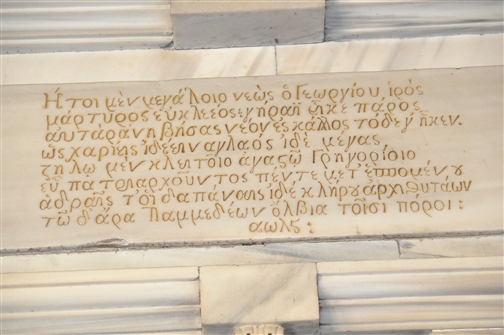 Ἤτοι μὲν μεγάλοιο νεὼς ὁ Γεωργίου, ἱρὸς
μάρτυρος εὐκλεέος γήραϊ εἶκε πάρος
αὐτὰρ ἀνηβήσας νέον ἐς κάλλος τόδε γ' ἧκεν
ὡς χαρίεις ἰδέειν ἀγλαὸς ἰδὲ μέγας
ζήλῳ μὲν κλειτοῖο ἄναξ ὦ Γρηγορίοιο
εὖ πατριαρχοῦντος πέντε μετ' ἑπομένου
ἁδραῖς τ' οἱ δαπάνησις ἰδὲ κληρῳ ἀρχιθυτάων
τῷ δ' ἄρα Παμμεδέων ὄλβια τοῖσι πόροι:
αωλϛ: